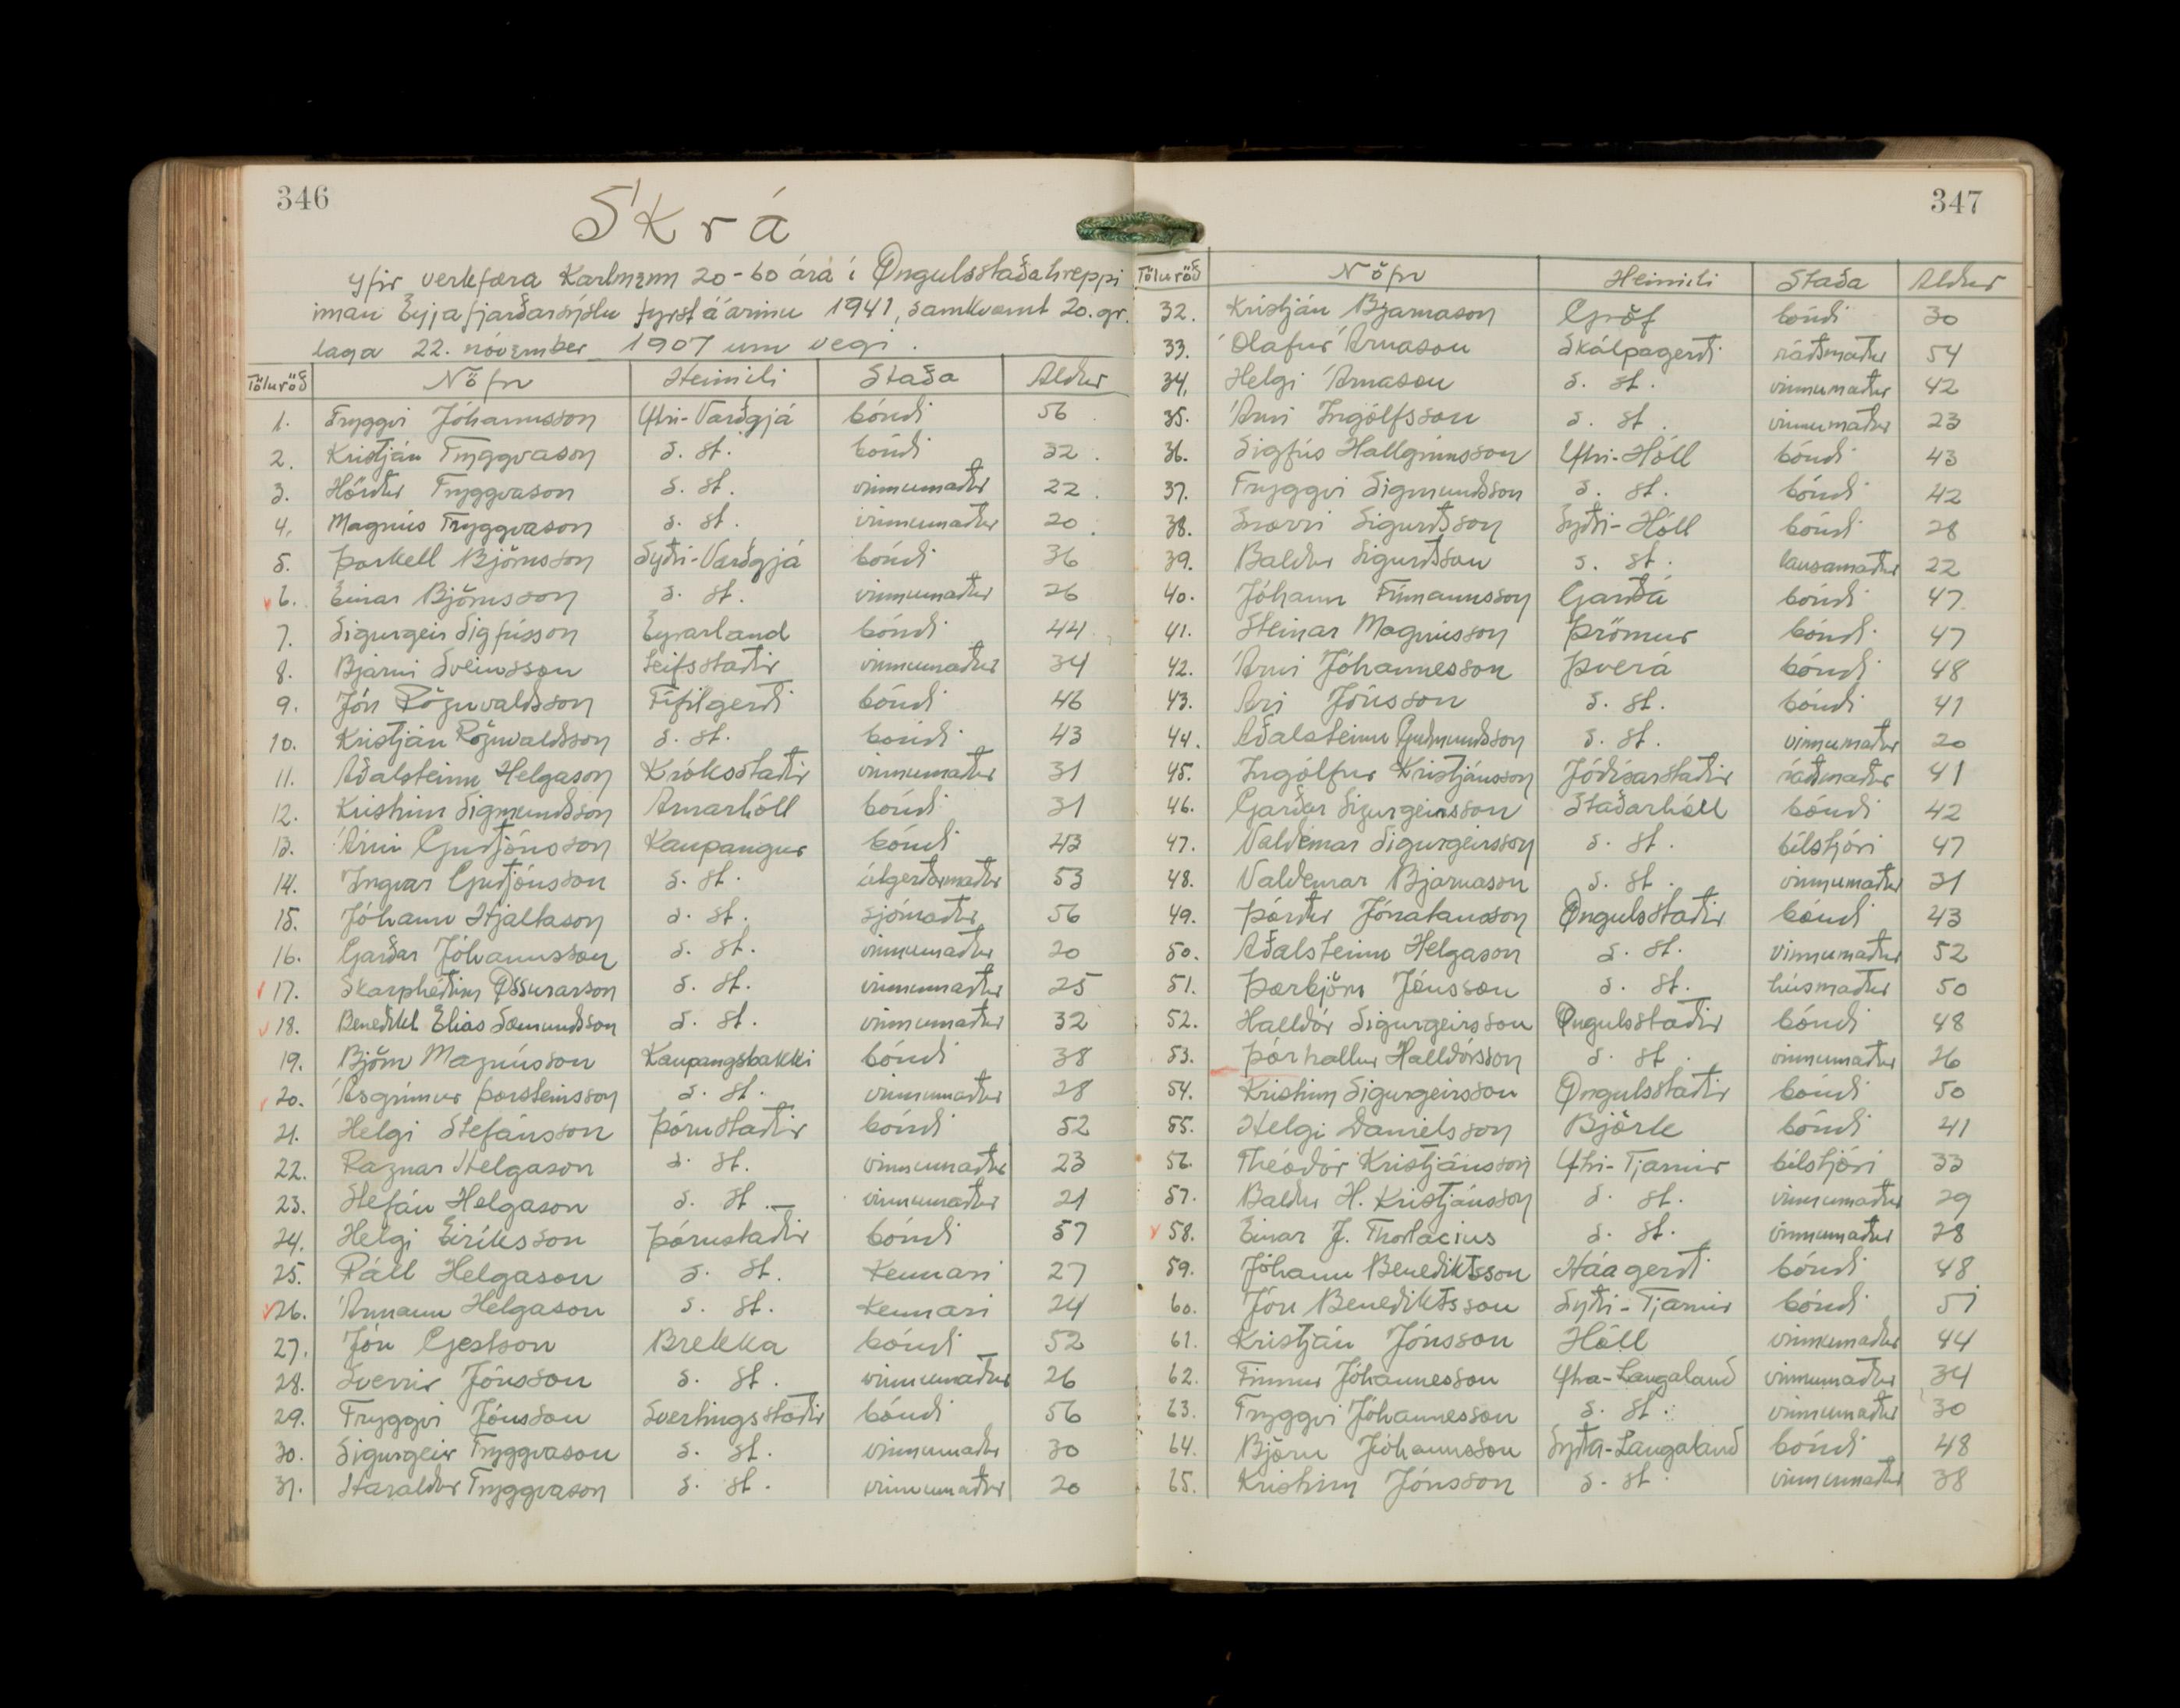 346
Skrá
yfir verkfæra karlmenn 20-60 ára í Öngulsstaðahreppi
innan Eyjafjarðarsýslu fyrst á árinu 1941, samkvæmt 20. gr.
laga 22. nóvember 1907 um vegi.
Töluröð Nöfn Heimili Staða Aldur
1. Tryggvi Jóhannsson Ytri-Varðgjá bóndi 56
2. Kristján Tryggvason s. st. bóndi 32
3. Hörður Tryggvason s. st. vinnumaður 22
4. Magnús Tryggvason s. st. vinnumaður 20
5. Þorkell Björnsson Syðri-Varðgjá bóndi 36
6. Einar Björnsson s. st. vinnumaður 26
7. Sigurgeir Sigfússon Eyrarland bóndi 44
8. Bjarni Sveinsson Leifsstaðir vinnumaður 34
9. Jón Rögnvaldsson Fífilgerði bóndi 46
10. Kristján Rögnvaldsson s. st. bóndi 43
11. Aðalsteinn Helgason Króksstaðir vinnumaður 31
12. Kristinn Sigmundsson Arnarhóll bóndi 31
13. Árni Guðjónsson Kaupangur bóndi 43
14. Ingvar Guðjónsson s. st. útgerðarmaður 53
15. Jóhann Hjaltason s. st. sjómaður 56
16. Garðar Jóhannsson s. st. vinnumaður 20
17. Skarphéðinn Össurarson s. st. vinnumaður 25
18. Benedikt Elías Sæmundsson s. st. vinnumaður 32
19. Björn Magnússon Kaupangsbakki bóndi 38
20. Ásgrímur Þorsteinsson s. st. vinnumaður 28
21. Helgi Stefánsson Þórustaðir bóndi 52
22. Ragnar Helgason s. st. vinnumaður 23
23. Stefán Helgason s. st. vinnumaður 21
24. Helgi Eiríksson Þórustaðir bóndi 57
25. Páll Helgason s. st. Kennari 27
26. Ármann Helgason s. st. Kennari 24
27. Jón Gestson Brekka bóndi 52
28. Sverrir Jónsson s. st. vinnumaður 26
29. Tryggvi Jónsson Svertingsstaðir bóndi 56
30. Sigurgeir Tryggvason s. st. vinnumaður 30
31. Haraldur Tryggvason s. st. vinnumaður 20
347
Töluröð Nöfn Heimili Staða Aldur
32. Kristján Bjarnason Gröf bóndi 30
33. Ólafur Árnason Skálpagerði ráðsmaður 54
34. Helgi Árnason s. st. vinnumaður 42
35. Árni Ingólfsson s. st. vinnumaður 23
36. Sigfús Hallgrímsson Ytri-Hóll bóndi 43
37. Tryggvi Sigmundsson s. st. bóndi 42
38. Snorri Sigurðsson Syðri-Hóll bóndi 28
39. Baldur Sigurðsson s. st. lausamaður 22
40. Jóhann Frímannsson Garðá bóndi 47
41. Steinar Magnússon Þrömur bóndi 47
42. Árni Jóhannesson Þverá bóndi 48
43. Ari Jónsson s. st. bóndi 41
44. Aðalsteinn Guðmundsson s. st. vinnumaður 20
45. Ingólfur Kristjánsson Jódísarstaðir ráðsmaður 41
46. Garðar Sigurgeirsson Staðarhóll bóndi 42
47. Valdemar Sigurgeirsson s. st. bílstjóri 47
48. Valdemar Bjarnason s. st. vinnumaður 31
49. Þórður Jónatansson Öngulsstaðir bóndi 43
50. Aðalsteinn Helgason s. st. vinnumaður 52
51. Þorbjörn Jónsson s. st. húsmaður 50
52. Halldór Sigurgeirsson Öngulsstaðir bóndi 48
53. Þórhallur Halldórsson s. st. vinnumaður 26
54. Kristinn Sigurgeirsson Öngulsstaðir bóndi 50
55. Helgi Daníelsson Björk bóndi 41
56. Théódór Kristjánsson Ytri-Tjarnir bílstjóri 33
57. Baldur H. Kristjánsson s. st. vinnumaður 29
58. Einar J. Thorlacius s. st. vinnumaður 28
59. Jóhann Benediktsson Háagerði bóndi 48
60. Jón Benediktsson Syðri-Tjarnir bóndi 51
61. Kristján Jónsson Hóll vinnumaður 44
62. Finnur Jóhannesson Ytra-Laugaland vinnumaður 34
63. Tryggvi Jóhannesson s. st. vinnumaður 30
64. Björn Jóhannsson Syðra-Laugaland bóndi 48
65. Kristinn Jónsson s. st. vinnumaður 38